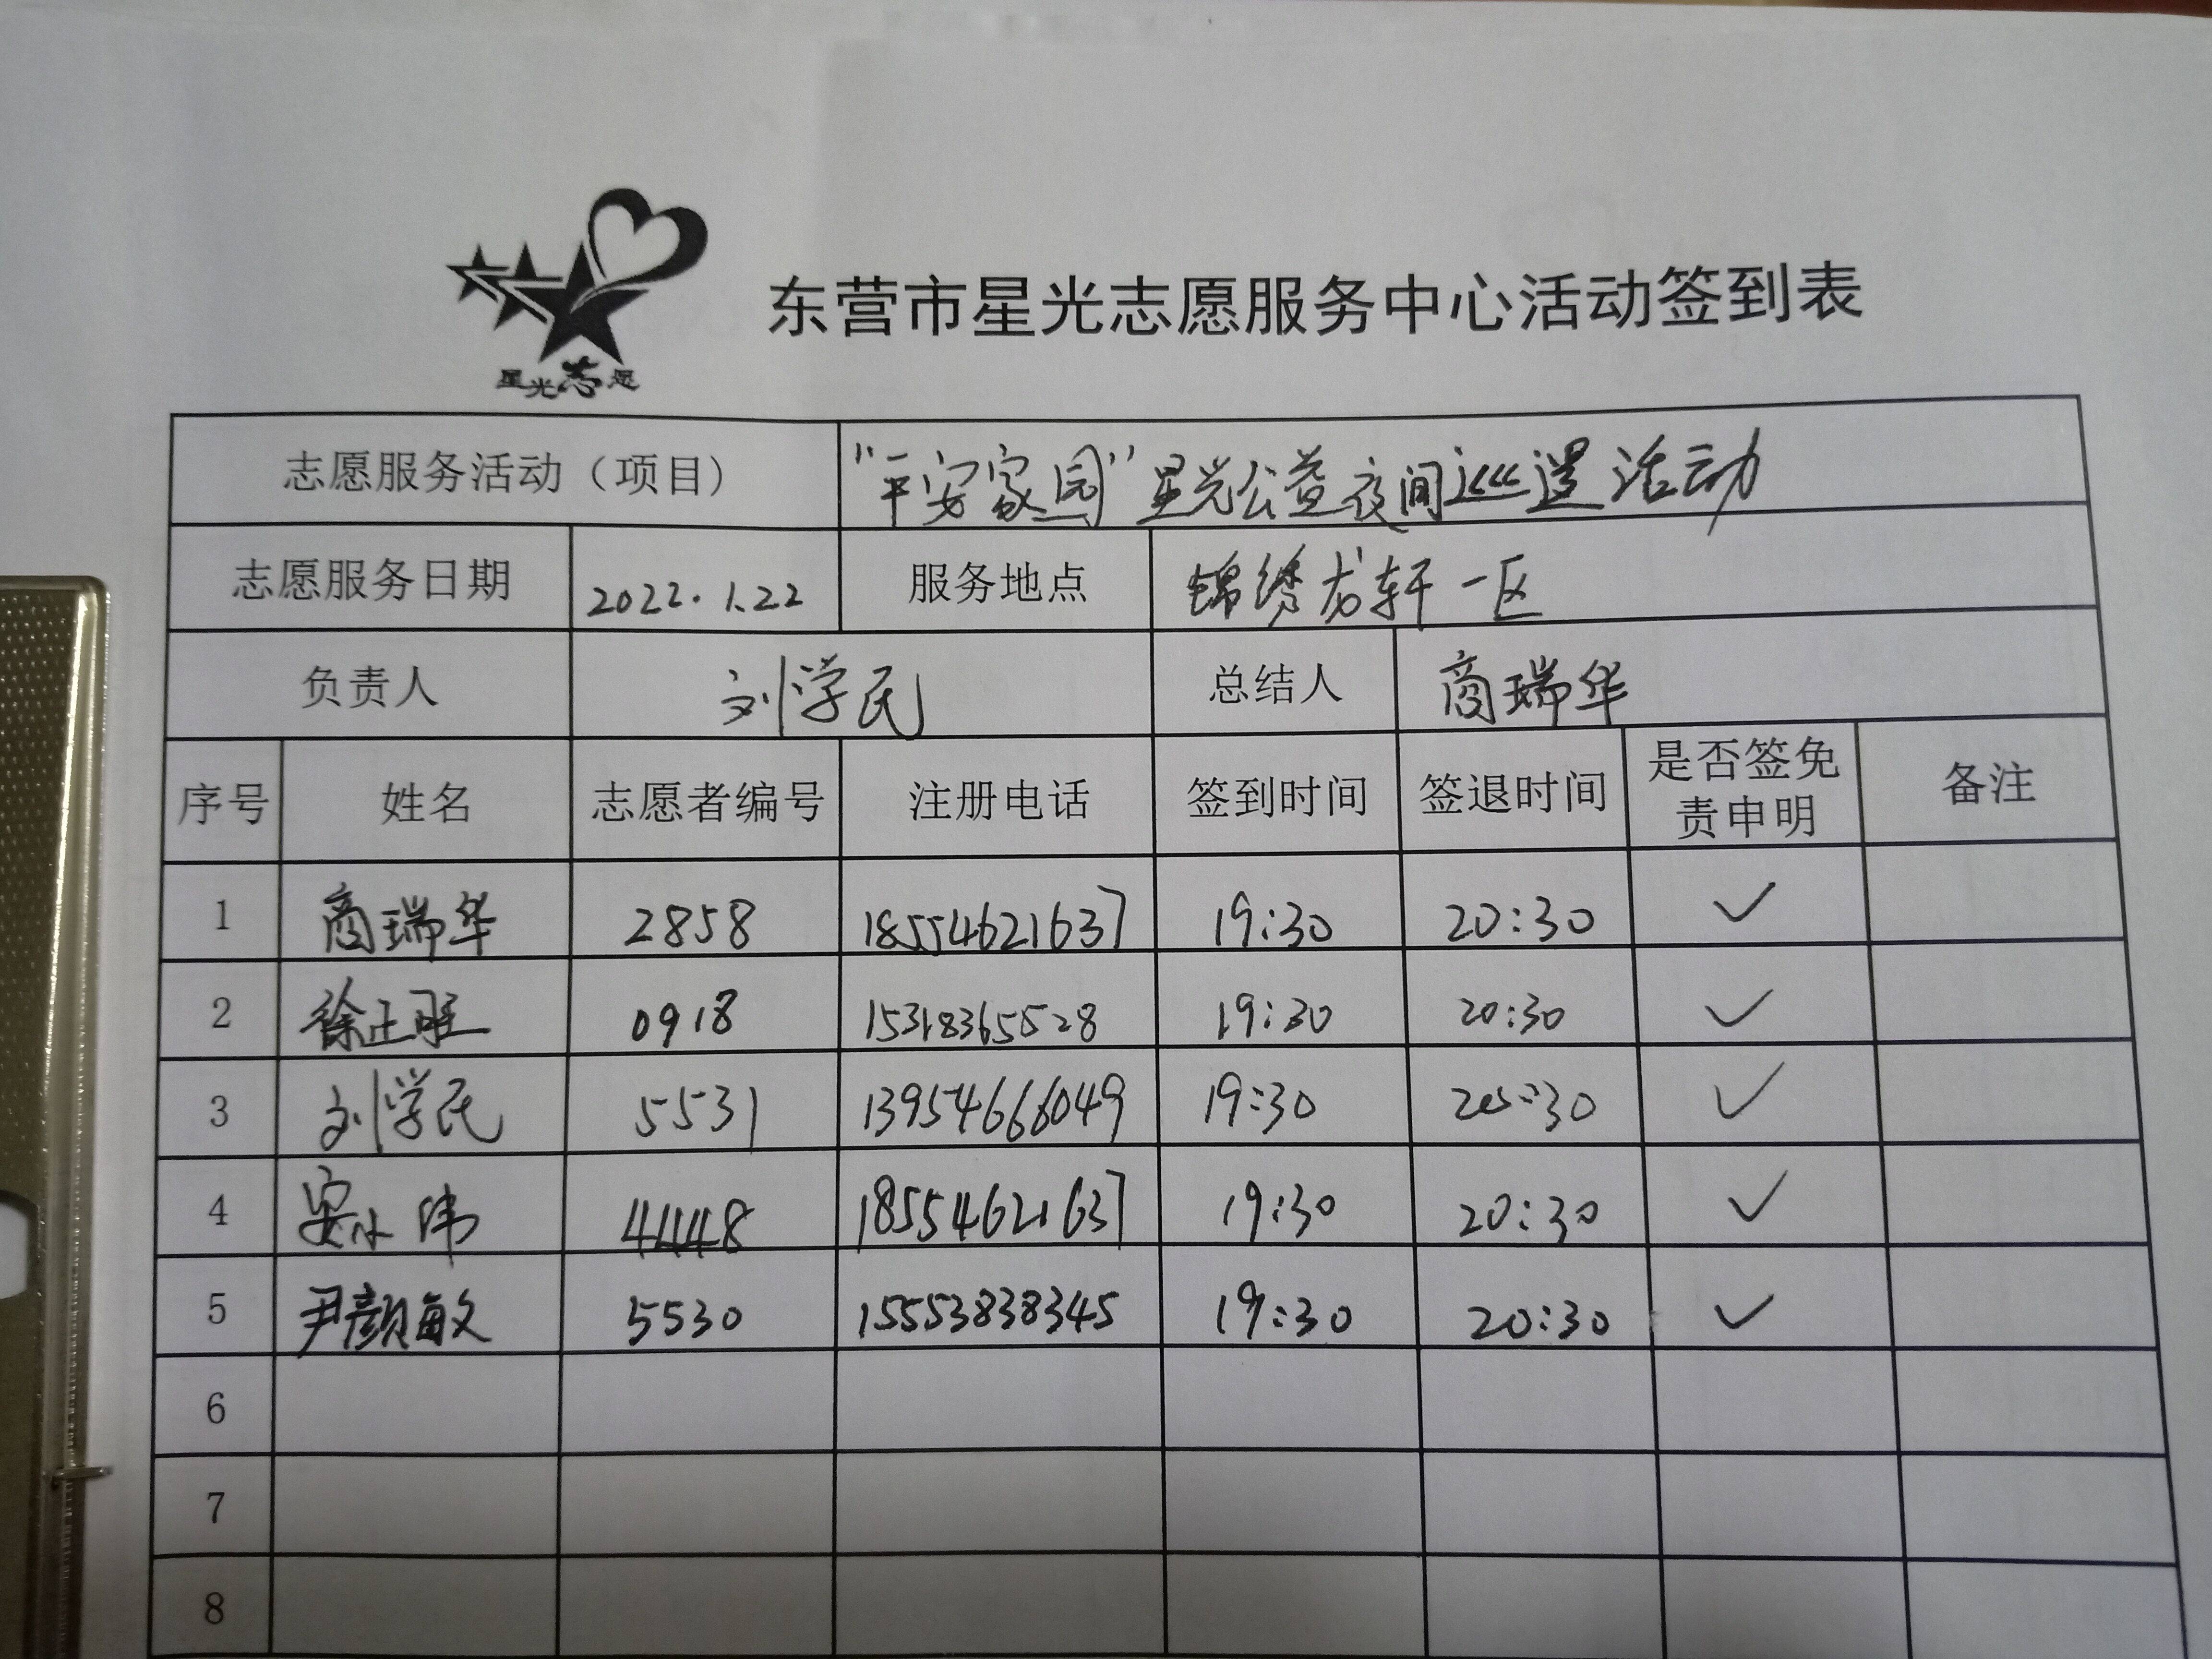 星光志愿
东营市星光志愿服务中心活动签到表
志愿服务活动（项目） "平安家园"星光公益夜间巡逻活动
志愿服务日期 2022.1.22 服务地点 锦绣龙轩一区
负责人 刘学民 总结人 商瑞华
序号 姓名 志愿者编号 注册电话 签到时间 签退时间 是否签免责申明 备注
1 商瑞华 2858 18554621637 19:30 20:30 ✓
2 徐正 0918 15318365528 19:30 20:30 ✓
3 刘学民 5531 13954666049 19:30 20:30 ✓
4 安小伟 4448 18554621637 19:30 20:30 ✓
5 尹颜敏 5530 15553838345 19:30 20:30 ✓
6
7
8